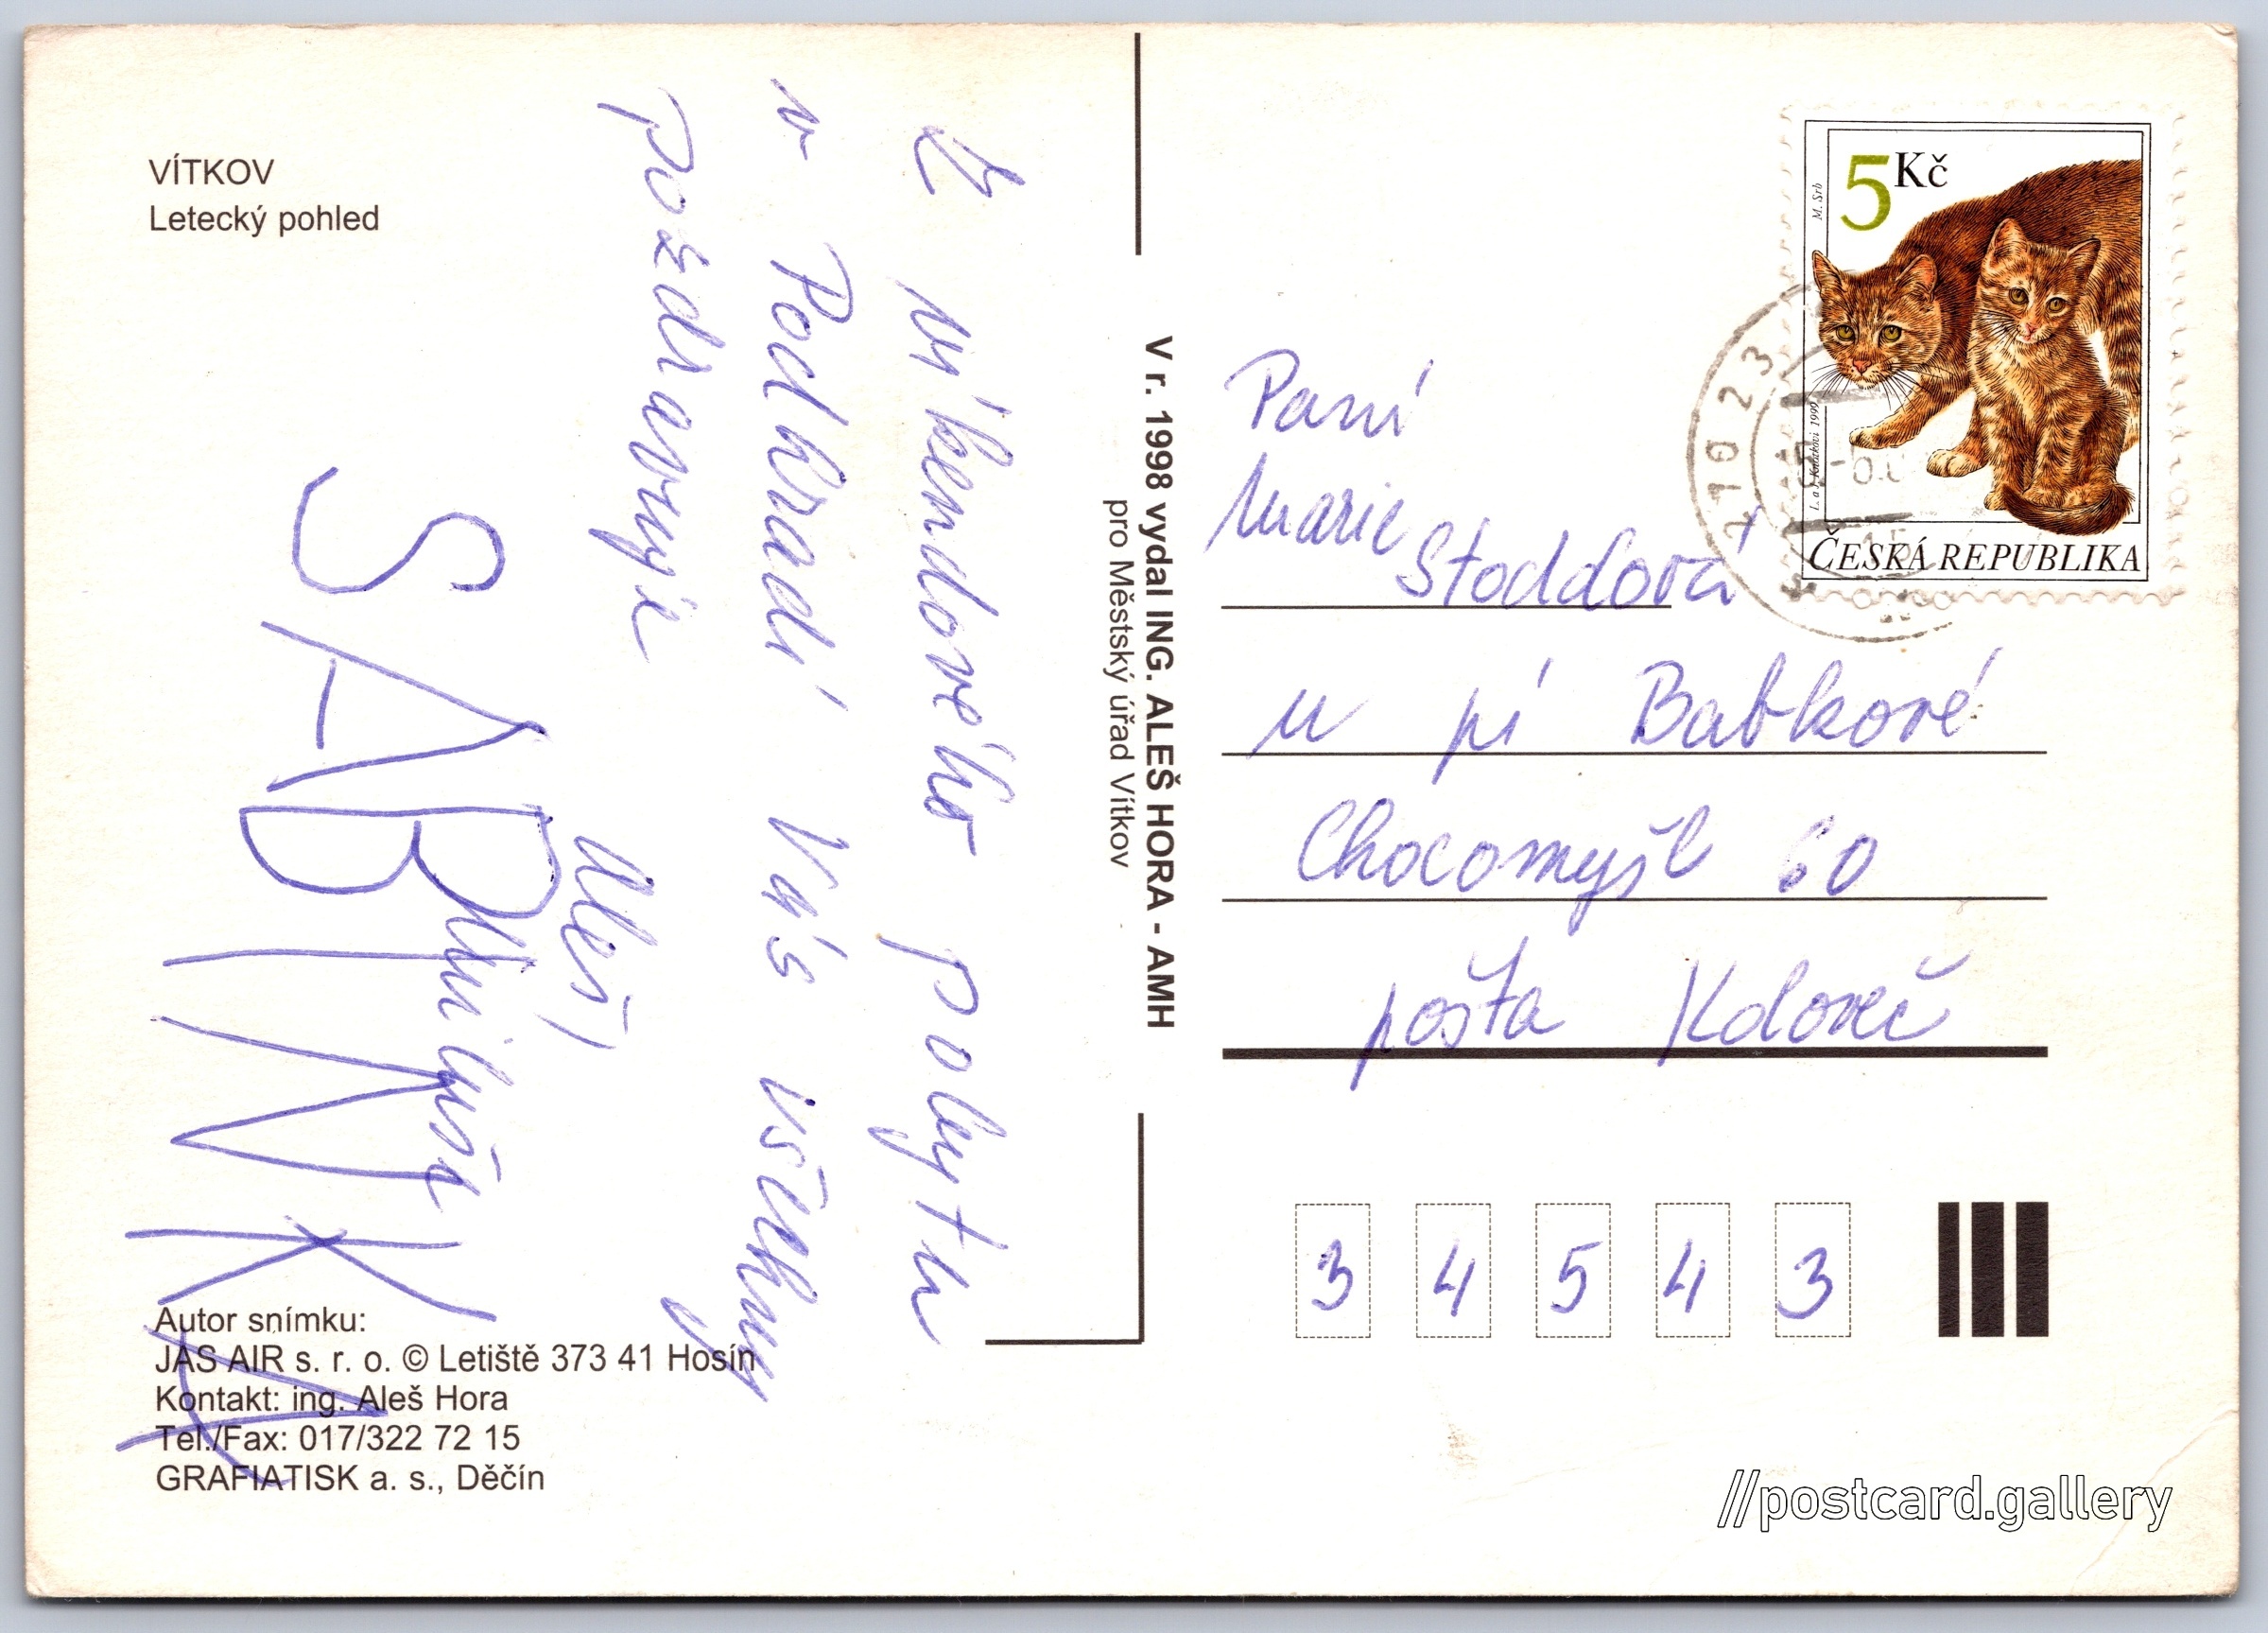 VÍTKOV
Letecký pohled
Z víkendového pobytu
v Podhradí Vás všechny
pozdravuje
Aleš,
Miluš
SABINKA
Autor snímku:
JAS AIR s. r. o. © Letiště 373 41 Hosín
Kontakt: ing. Aleš Hora
Tel./Fax: 017/322 72 15
GRAFIATISK a. s., Děčín
V r. 1998 vydal ING. ALEŠ HORA - AMH
pro Městský úřad Vítkov
5 Kč
M. Srb
ČESKÁ REPUBLIKA
Paní
Marie Stoddová
u pí Babkové
Chocomyšl 60
pošta Koloveč
3 4 5 4 3
//postcard.gallery